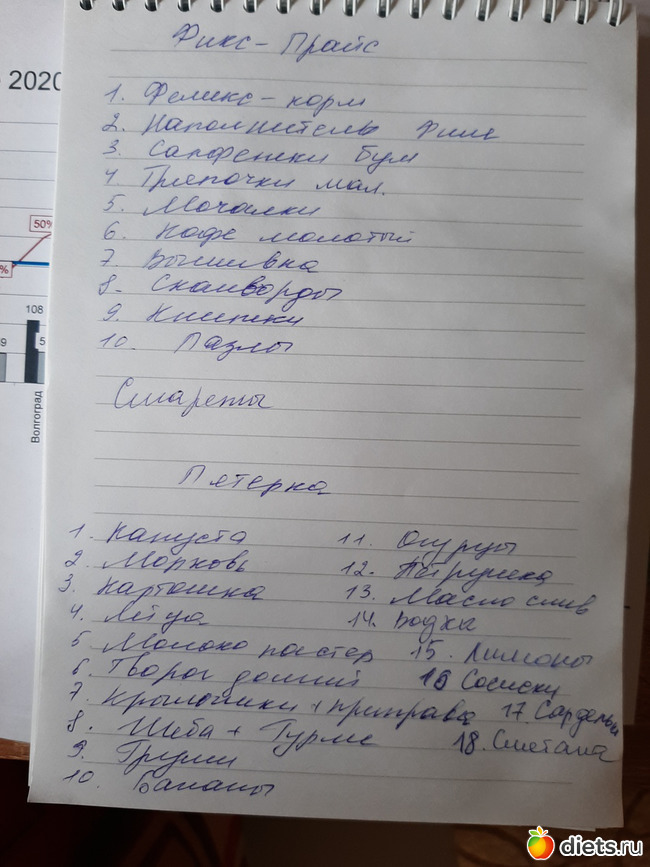 Фикс-Прайс
1. Феликс-корм
2. Наполнитель
3. Салфетки бум
4 Тряпочки мал.
5. Мочалки
6. Кофе молотый
7. Вышивка
8. Сканворды
9. Книжки
10. Пазлы
Сигареты
Пятерка
1. Капуста
2. Морковь
3. Картошка
4. Яйца
5 Молоко пастер
6. Творог
7. Крылышки + приправа
8. Шеба + Гурме
9. Груши
10. Бананы
11. Огурцы
12. Петрушка
13. Масло слив
14. Водка
15. Лимоны
16 Сосиски
17. Сардельки
18. Сметана
2020
50%
%
108
9
5
Волгоград
diets.ru